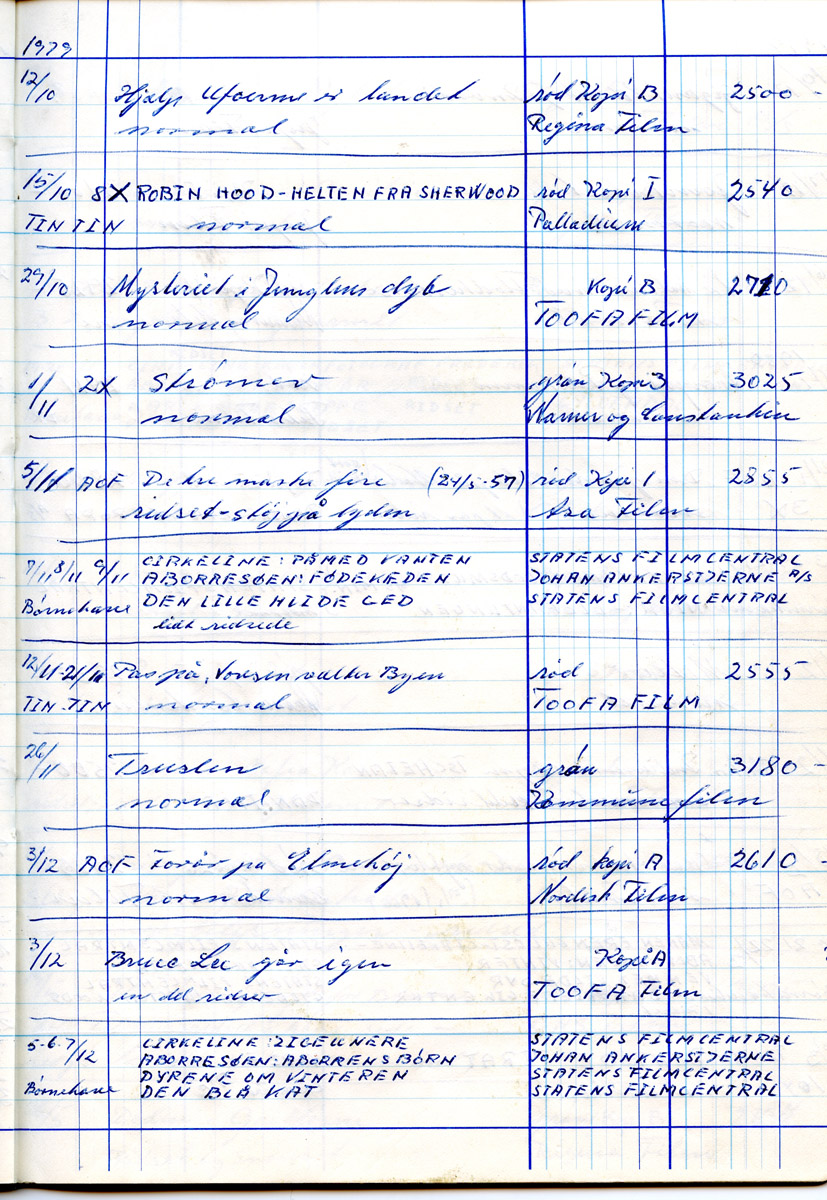 1979
12/10 Hjælp Ufoerne er landet rød Kopi B 2500 -
normal Regina Film
15/10 8X ROBIN HOOD-HELTEN FRA SHERWOOD rød Kopi I 2540
TIN TIN normal Palladium
29/10 Mysteriet i Junglens dyb Kopi B 2710
normal TOOFA FILM
1/11 2X Strømer grøn Kopi 3 3025
normal Warner og Constantin
5/11 AOF De tre måske fire (24/5-57) rød Kopi 1 2855
ridset-støj på lyden Asa Film
7/11 8/11 9/11 CIRKELINE: PÅ MED VANTEN STATENS FILMCENTRAL
ABORRESØEN: FØDEKÆDEN JOHAN ANKERSTJERNE A/S
Børnehave DEN LILLE HVIDE GED STATENS FILMCENTRAL
lidt ridsede
12/11-21/11 Pas på, Vovsen vælter Byen rød 2555
TIN-TIN normal TOOFA FILM
26/11 Truslen grøn 3180 -
normal Kommune film
3/12 AOF Forår på Elmehøj rød kopi A 2610 -
normal Nordisk Film
3/12 Bruce Lee går igen Kopi A
en del ridser TOOFA Film
5-6-7/12 CIRKELINE: ZIGEUNERE STATENS FILMCENTRAL
ABORRESØEN: ABORRENS BØRN JOHAN ANKERSTJERNE
DYRENE OM VINTEREN STATENS FILMCENTRAL
Børnehave DEN BLÅ KAT STATENS FILMCENTRAL